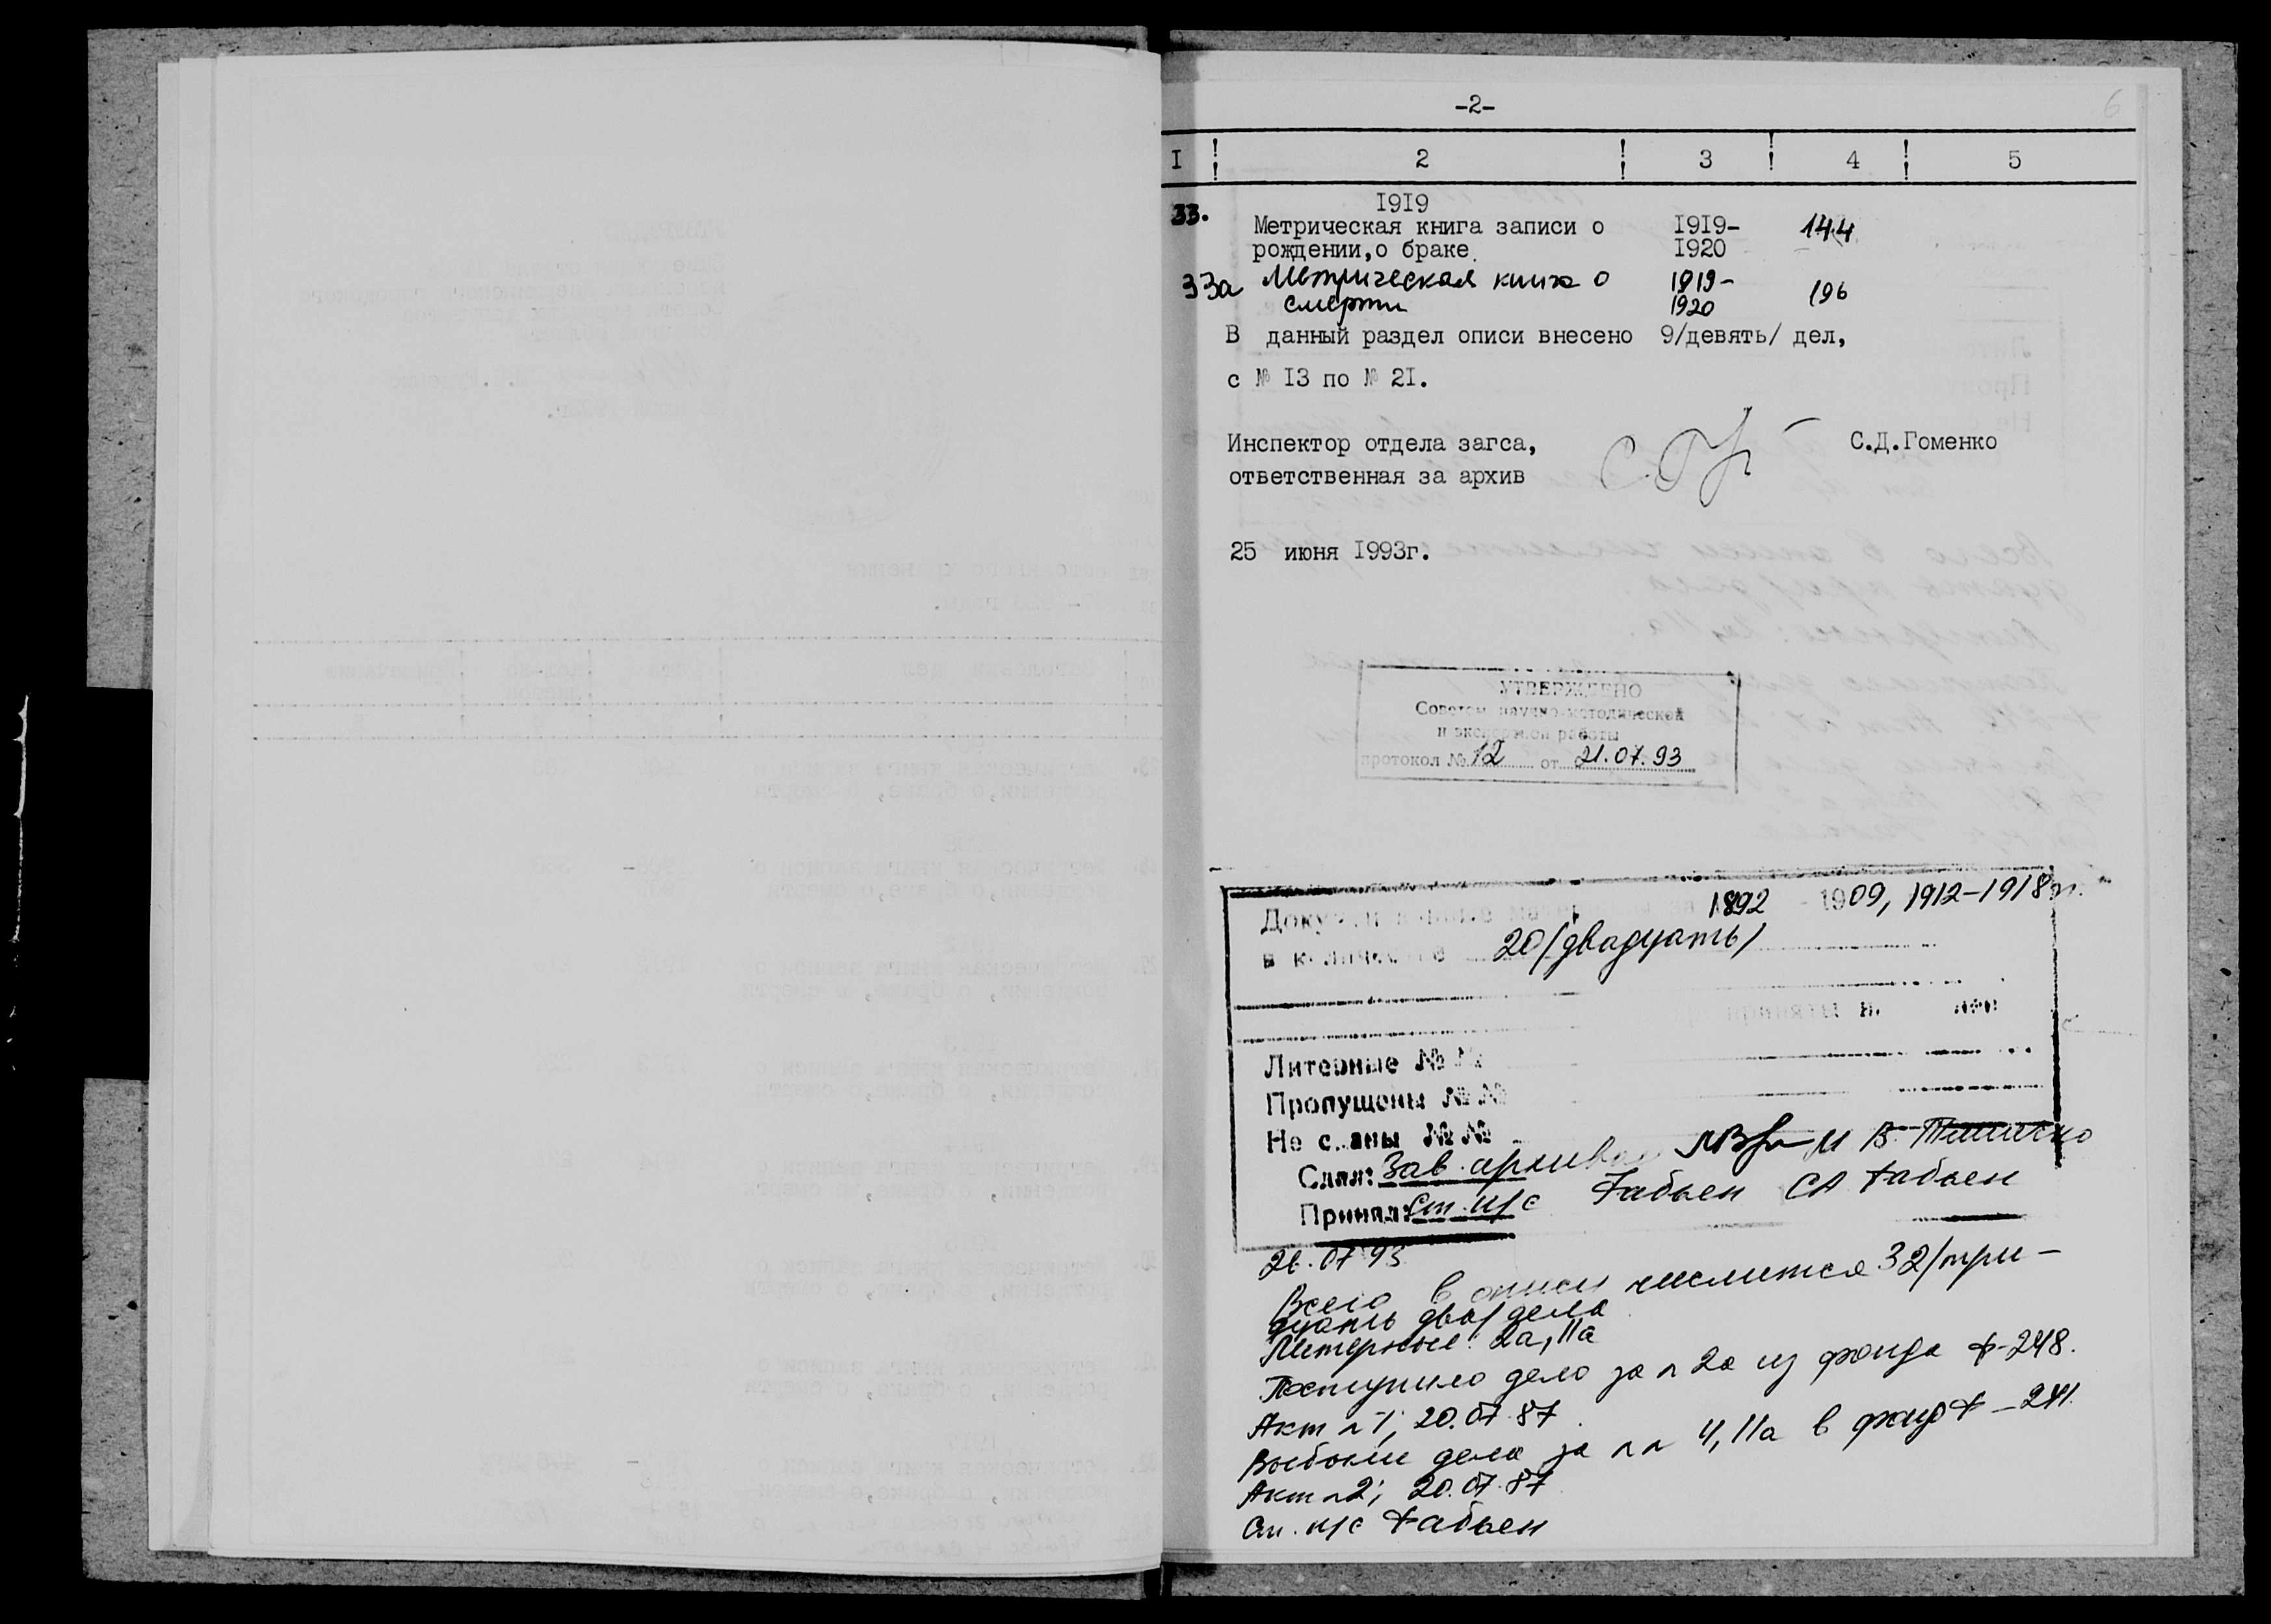 -2-
6
I ! 2 ! 3 ! 4 ! 5
1919
33. Метрическая книга записи о 1919- 144
рождении,о браке 1920
33а Метрическая книга о 1919- 196
смерти 1920
В данный раздел описи внесено 9/девять/ дел,
с № 13 по № 21.
Инспектор отдела загса, С.Д.Гоменко
ответственная за архив
25 июня 1993г.
УТВЕРЖДЕНО
Советом научно-методической
и экспертной работы
протокол № 12 от 21.07.93
1892 - 1909, 1912-1918гг.
в количестве 20/двадцать/
приняты
Литерные №№
Пропущены №№
Не сданы №№
Сдал: Зав. архивом
Принял: Ст. н/с Фабьен СА Фабьен
26.07.93
Всего в описи числится 32/три-
дцать два/ дела
Литерные: 2а, 11а
Поступило дело за № 2а из фонда Ф-248.
Акт №1; 20.07.87
Выбыли дела за №№ 4, 11а в фонд Ф-241.
Акт №2; 20.07.87
Ст. н/с Фабьен